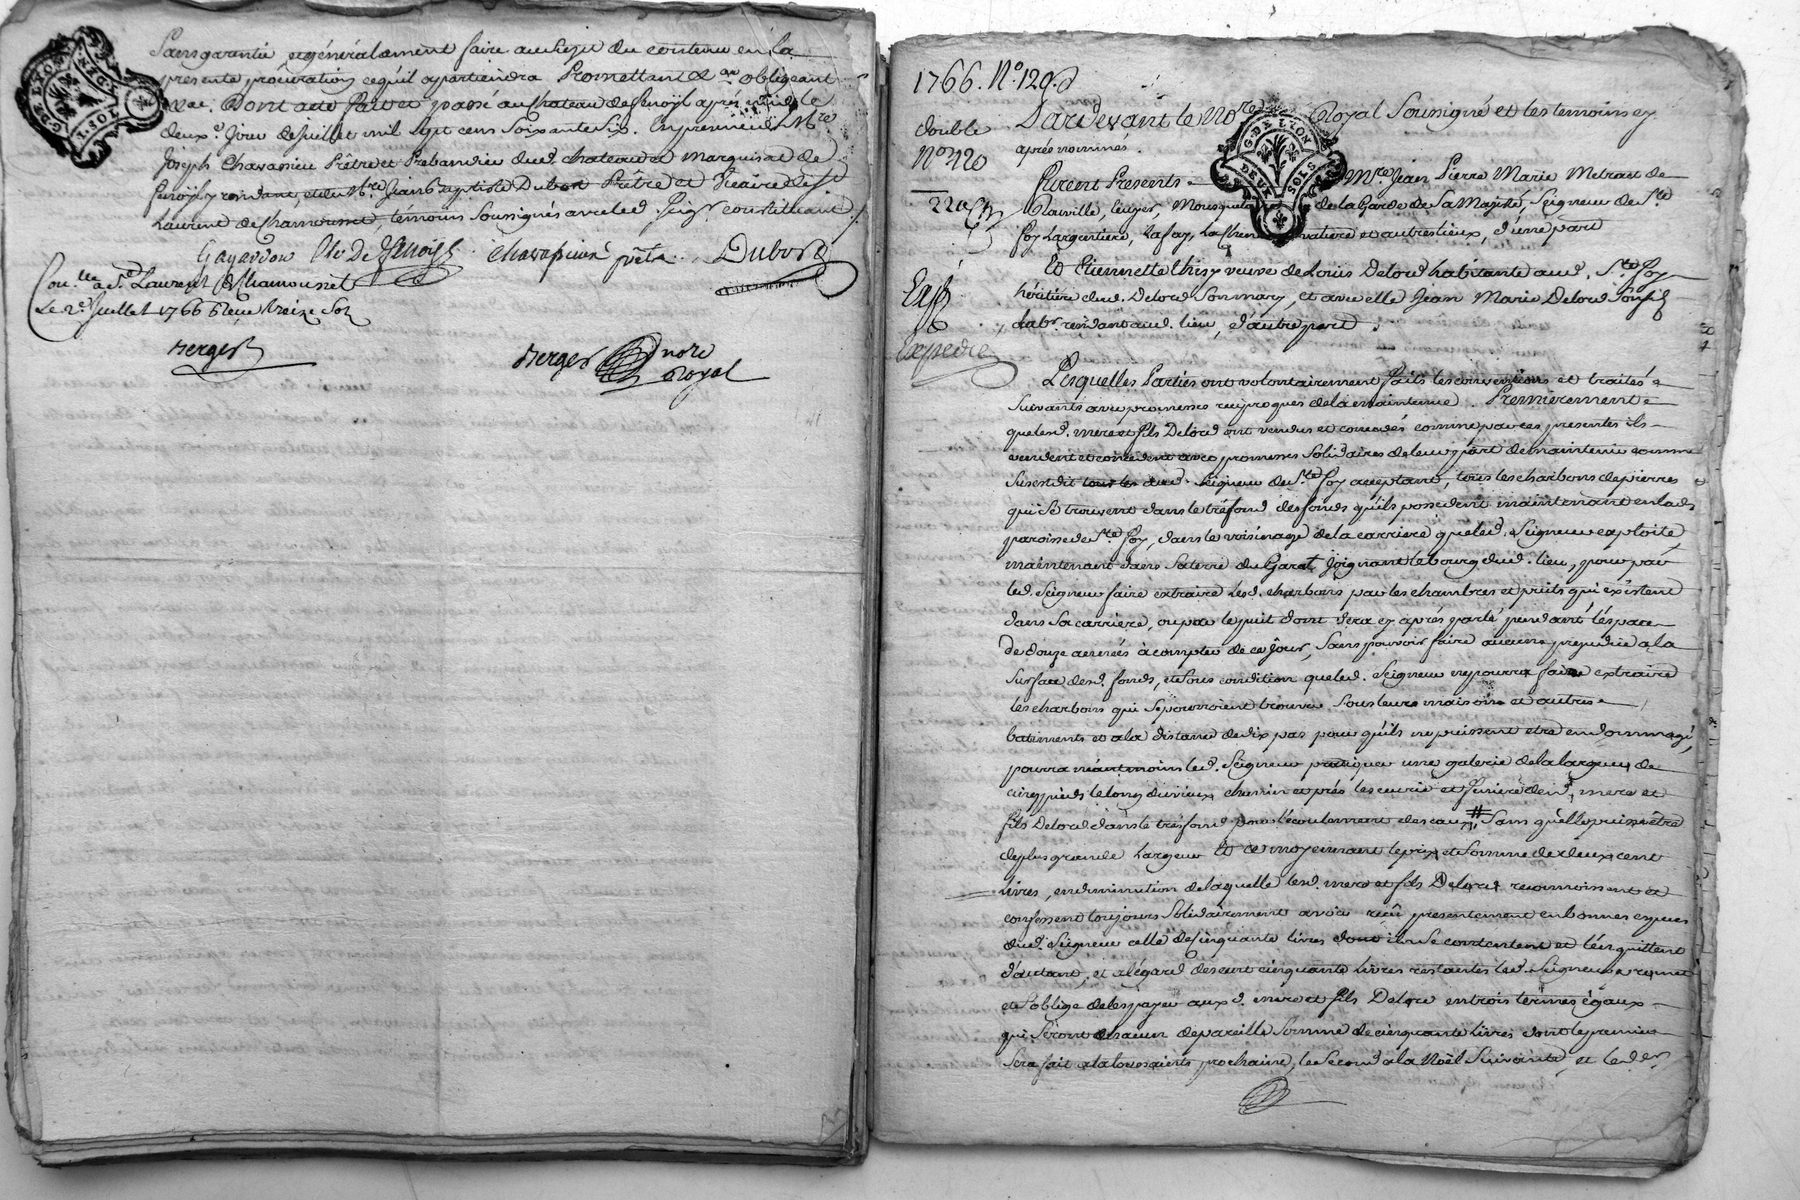 G. DE LYON
DEUX SOLS
Sans garantie et généralement faire au sujet du contenu en la
presente procuration ce qu'il apartiendra Promettant &a obligeant
&ac. Dont acte Fait et passé au chateau de Senoÿl après midi le
deuxe. Jour de Juillet mil sept cens soixante six. En presence de Mre
Joseph Chavassieu Prêtre et Prebandier dud. chateau et Marquisat de
Senoÿl y residant, et de Mre. Jean Baptiste Dubost Prêtre et Vicaire de St
Laurent de Chamousset témoins Soussignés avec led. Seigr. constituant
Gayardon de Fenoyl Chavassieux prêtre Dubost
Con.lle a St. Laurent de Chamousset
Le 2e. Juillet 1766 Reçu treize Sols
Berger
Berger nore
Royal
1766. No. 129.
double
No. 120
Expedié
G. DE LYON
DEUX SOLS
Pardevant le Nore Royal Soussigné et les temoins cy
après nommés.
Furent Presents Mre. Jean Pierre Marie Metrat de
Ecuyer, Mousquetaire de la Garde de Sa Majesté, Seigneur de Ste
Foy Largentiere, et autres lieux, d'une part
Et Etiennette veuve de Loüis Delord habitante aud. Ste Foy
héritiere dud. Delord Son mary, et avec elle Jean Marie Delord Son fils
labr. residant aud. lieu, d'autre part.
Lesquelles Parties ont volontairement faits les conventions et traités
Suivants avec promesses reciproques de la maintenue. Premierement
que lesd. mere et fils Delord ont vendus et concedés comme par ces presentes ils
vendent et concedent avec promesses Solidaires de leur part de maintenir comme
Susest dit aud. Seigneur de Ste Foy acceptant, tous les charbons de pierres
qui Se trouvent dans le tréfond des fonds qu'ils possedent maintenant en lad.
paroisse de Ste Foy, dans le voisinage de la carriere que led. Seigneur exploite
maintenant dans Sa terre du Garat Joignant le bourg dud. lieu, pour par
led. Seigneur faire extraire lesd. charbons par les chambres et puits qui existent
dans Sa carriere, ou par le puit dont Sera cy après parlé pendant l'éspace
de douze années à compter de ce Jour, Sans pouvoir faire aucun prejudice a la
Surface desd. fonds, et Sous condition que led. Seigneur ne pourra faire extraire
les charbons qui Se pourroient trouver Sous leurs maisons et autres
batiments et a la distance de dix pas pour qu'ils ne puissent etre endommagé,
pourra néantmoins led. Seigneur pratiquer une galerie de la largeur de
cinq pieds le long du vieux chemin et près les ecurie et desd. mere et
fils Delord dans le tréfond pour l'ecoulement des eaux, # Sans qu'elle puisse etre
de plus grande largeur Et ce moyennant le prix et Somme de deux cent
livres, en diminution de laquelle lesd. mere et fils Delord reconnoissent et
confessent toujours Solidairement avoir reçû presentement en bonnes especes
dud. Seigneur celle de cinquante livres dont ils Se contentent et l'en quittent
d'autant, et a l'égard des cent cinquante livres restantes led. Seigneur promet
et S'oblige de les payer auxd. mere et fils Delord en trois termes égaux
qui Seront chacun de pareille Somme de cinquante livres dont le premier
Sera fait a la toussaints prochaine, le Second a la Noël Suivante, et le der